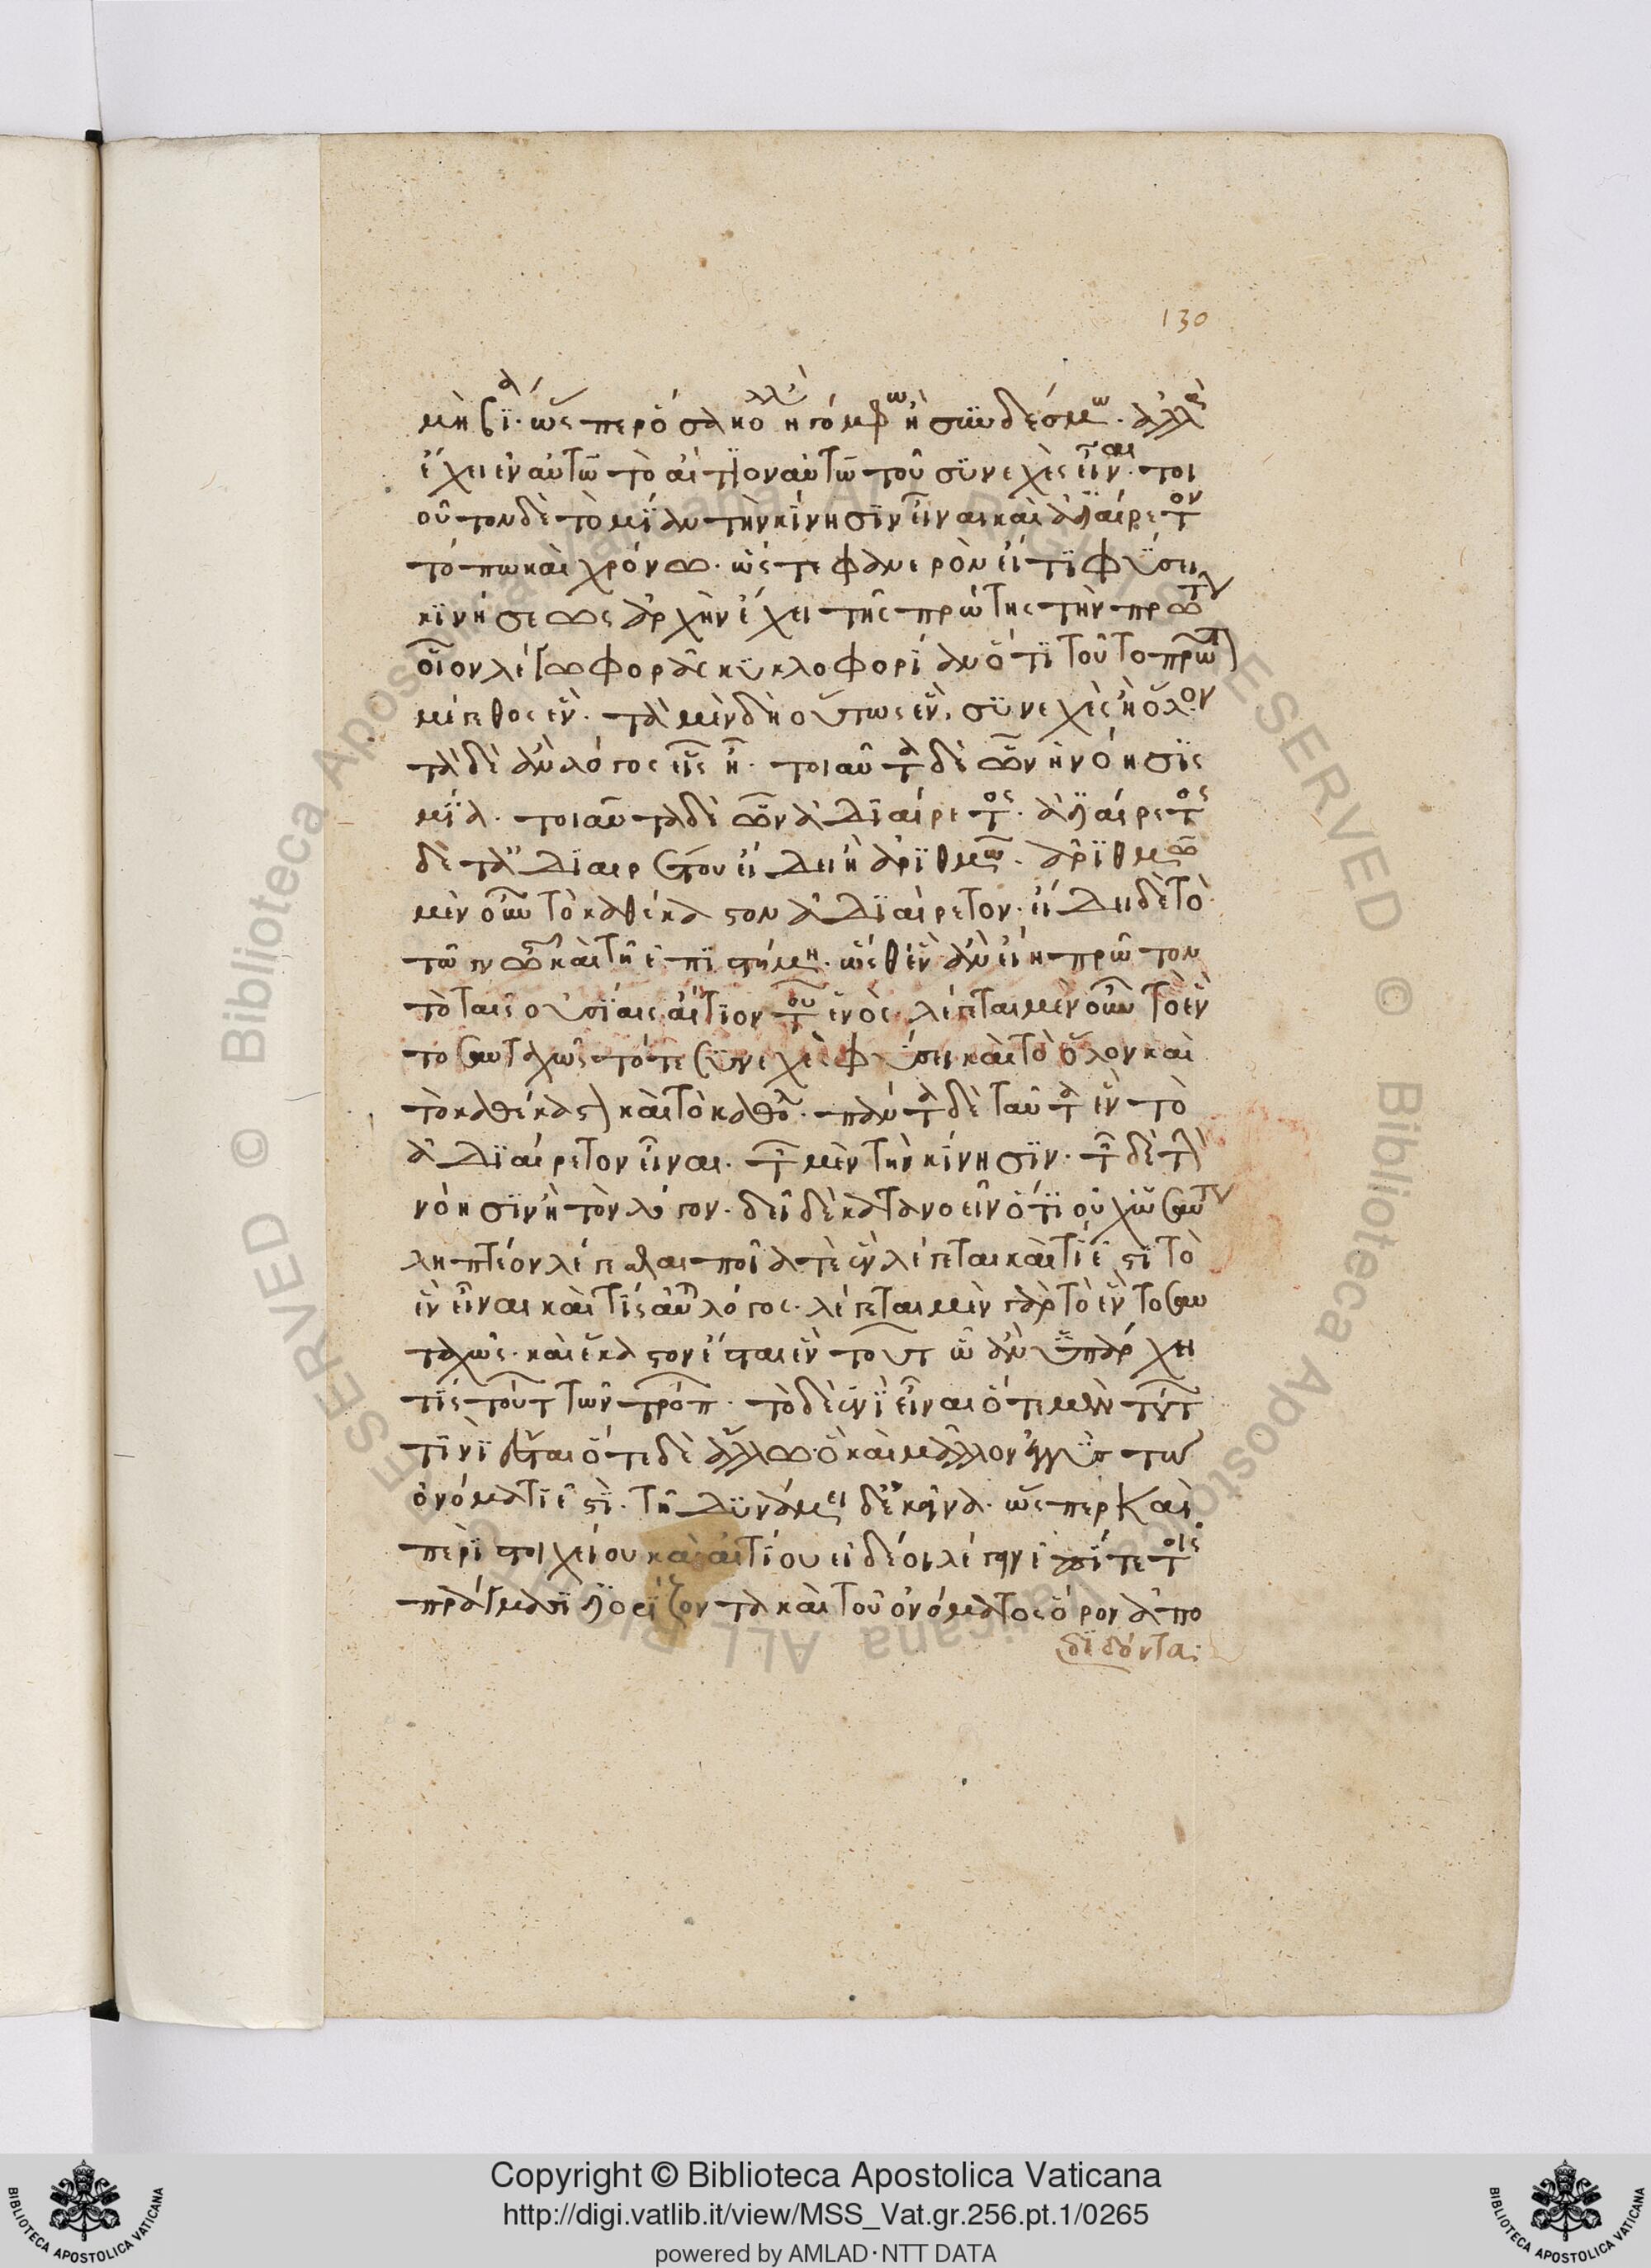 130
μὴ βία· ὥσπερ ὅσα κόλλη ἢ γόμφω ἢ συνδέσμω· ἀλλὰ
ἔχει ἐν αὑτῶ τὸ αἴτιον αὑτῶ τοῦ συνεχὲς εἶναι· τοι
οῦτον δὲ τὸ μίαν τὴν κίνησιν εἶναι καὶ ἀδιαίρετον
τόπω καὶ χρόνω· ὥστε φανερὸν εἴ τι φύσει
κινήσεως ἀρχὴν ἔχει τῆς πρώτης τὴν πρώτην
οἷον λέγω φορᾶς κυκλοφορίαν ὅτι τοῦτο πρῶτον
μέγεθος ἕν· τὰ μὲν δὴ οὕτως ἓν, συνεχὲς ἢ ὅλον
τὰ δὲ ἂν λόγος εἷς ἦ· τοιαῦτα δὲ ὧν ἡ νόησις
μία· τοιαῦτα δὲ ὧν ἀδιαίρετος· ἀδιαίρετος
δὲ τἀδιαιρέτου εἴδει ἢ ἀριθμῶ· ἀριθμῶ
μὲν οὖν τὸ καθέκαστον ἀδιαίρετον· εἴδει δὲ τὸ
τῶ γνωστῶ καὶ τῆ ἐπιστήμη· ὥσθ' ἓν ἂν εἴη πρῶτον
τὸ ταῖς οὐσίαις αἴτιον τοῦ ἑνός· λέγεται μὲν οὖν τὸ ἓν
τοσαυταχῶς τό τε συνεχὲς φύσει καὶ τὸ ὅλον καὶ
τὸ καθέκαστον καὶ τὸ καθόλου· πάντα δὲ ταῦτα ἓν τὸ
ἀδιαίρετον εἶναι· τῶν μὲν τὴν κίνησιν· τῶν δὲ τὴν
νόησιν ἢ τὸν λόγον· δεῖ δὲ κατανοεῖν ὅτι οὐχ ὡσαύτως
ληπτέον λέγεσθαι ποῖά τε ἓν λέγεται καὶ τί ἐστι τὸ
ἓν εἶναι καὶ τίς αὐτοῦ λόγος· λέγεται μὲν γὰρ τὸ ἓν τοσαυ
ταχῶς· καὶ ἕκαστον ἔσται ἓν τούτων ὧ ἂν ὑπάρχη
τὶς τούτων τῶν τρόπων· τὸ δὲ ἑνὶ εἶναι ὁτὲ μὲν τούτων
τινὶ ἔσται ὁτὲ δὲ ἄλλω ὃ καὶ μᾶλλον ἐγγὺς τῶ
ὀνόματί ἐστι· τῆ δυνάμει δ' ἐκεῖνα· ὥσπερ καὶ
περὶ στοιχείου καὶ αἰτίου εἰ δέοι λέγειν ἐπί τε τοῖς
πράγμασι διορίζοντα καὶ τοῦ ὀνόματος ὅρον ἀπο
διδόντα:
Copyright © Biblioteca Apostolica Vaticana
http://digi.vatlib.it/view/MSS_Vat.gr.256.pt.1/0265
powered by AMLAD·NTT DATA
BIBLIOTECA APOSTOLICA VATICANA
BIBLIOTECA APOSTOLICA VATICANA